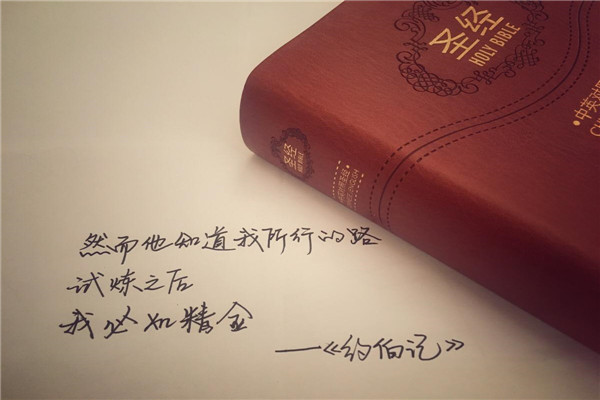 圣经
HOLY BIBLE
中英对
CH
圣经
HOLY BIBLE
然而他知道我所行的路
试炼之后
我必如精金
—《约伯记》